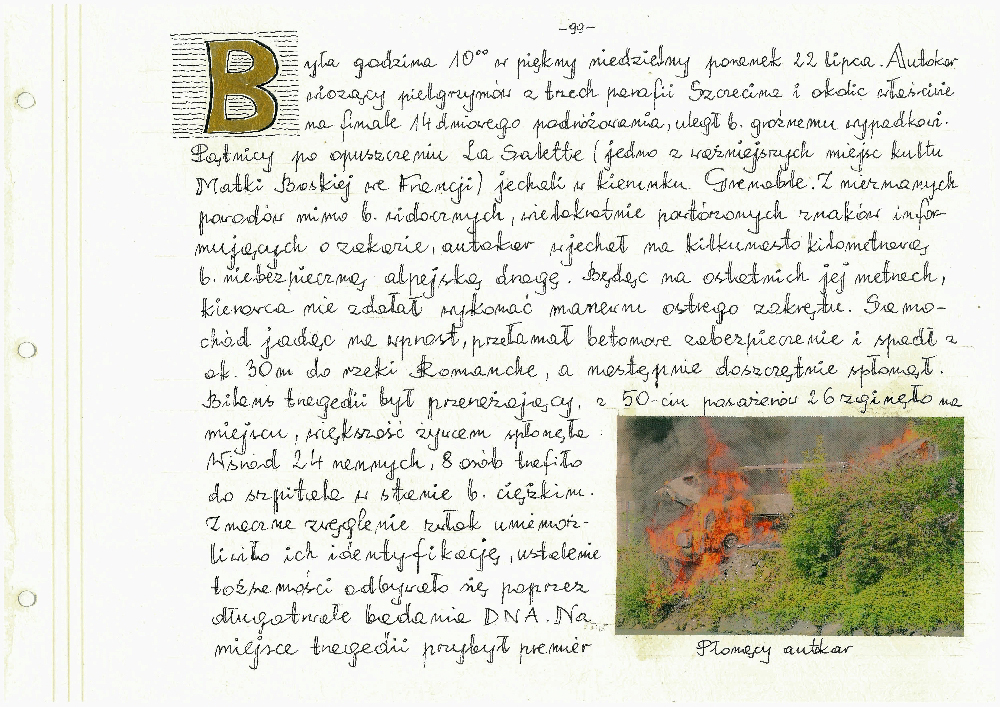 -99-
Była godzina 10⁰⁰ w piękny niedzielny poranek 22 lipca. Autokar
wiozący pielgrzymów z trzech parafii Szczecina i okolic właściwie
na finale 14 dniowego podróżowania, uległ b. groźnemu wypadkowi.
Pątnicy po opuszczeniu La Salette (jedno z ważniejszych miejsc kultu
Matki Boskiej we Francji) jechali w kierunku Grenoble. Z nieznanych
powodów mimo b. widocznych, wielokrotnie powtórzonych znaków infor-
mujących o zakazie, autokar wjechał na kilkunasto kilometrową,
b. niebezpieczną alpejską drogę. Będąc na ostatnich jej metrach,
kierowca nie zdołał wykonać manewru ostrego zakrętu. Samo-
chód jadąc na wprost, przełamał betonowe zabezpieczenie i spadł z
ok. 30 m do rzeki Romanche, a następnie doszczętnie spłonął.
Bilans tragedii był przerażający, z 50-ciu pasażerów 26 zginęło na
miejscu, większość żywcem spłonęła.
Wśród 24 rannych, 8 osób trafiło
do szpitala w stanie b. ciężkim.
Znaczne zwęglenie zwłok uniemoż-
liwiło ich identyfikację, ustalenie
tożsamości odbywało się poprzez
długotrwałe badania DNA. Na
miejsce tragedii przybył premier
Płonący autokar